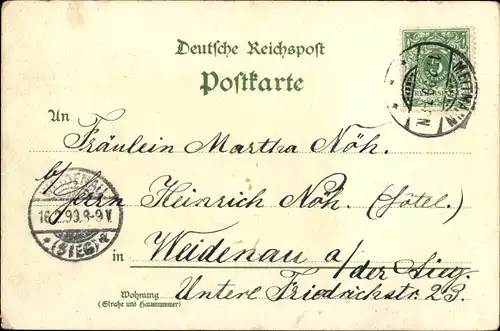 Deutsche Reichspost
Postkarte
An
Fräulein Martha Nöh.
b/ Herrn Heinrich Nöh. (Hotel.)
in Weidenau a/ der Sieg.
Wohnung
(Straße und Hausnummer)
Untere Friedrichstr. 23.
WEIDENAU
16.2.99.8-9V
* (SIEG) *
METTMANN
5